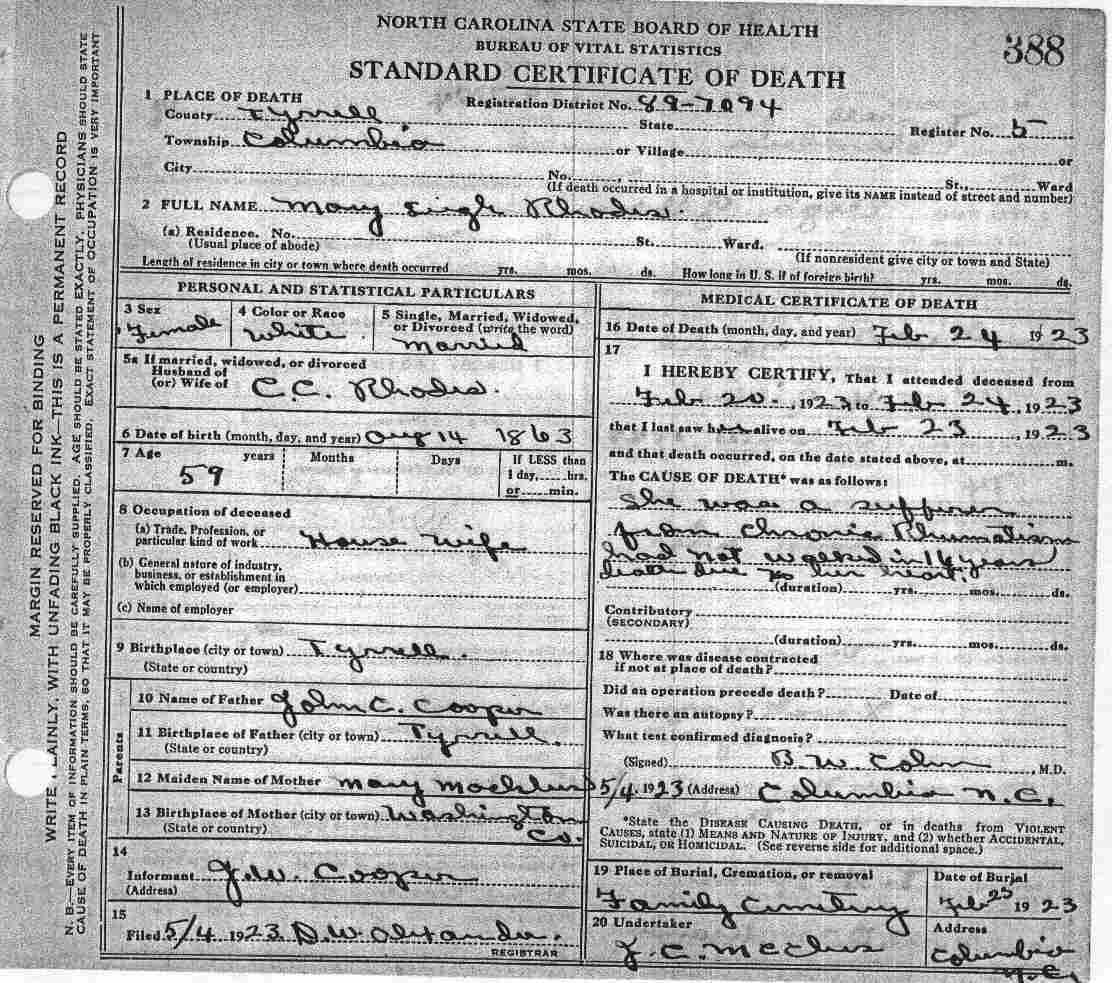 NORTH CAROLINA STATE BOARD OF HEALTH
BUREAU OF VITAL STATISTICS
388
STANDARD CERTIFICATE OF DEATH
1 PLACE OF DEATH
Registration District No. 89-7094
County Tyrrell State Register No. 5
Township Columbia or Village or
City No. , St., Ward
(If death occurred in a hospital or institution, give its NAME instead of street and number)
2 FULL NAME Mary Rhodes
(a) Residence. No. St. Ward.
(Usual place of abode) (If nonresident give city or town and State)
Length of residence in city or town where death occurred yrs. mos. ds. How long in U. S. if of foreign birth? yrs. mos. ds.
PERSONAL AND STATISTICAL PARTICULARS
3 Sex
Female
4 Color or Race
White
5 Single, Married, Widowed, or Divorced (write the word)
Married
5a If married, widowed, or divorced
Husband of
(or) Wife of C.C. Rhodes.
6 Date of birth (month, day, and year) Aug 14 1863
7 Age years Months Days If LESS than
59 1 day, hrs.
or min.
8 Occupation of deceased
(a) Trade, Profession, or
particular kind of work House wife
(b) General nature of industry,
business, or establishment in
which employed (or employer)
(c) Name of employer
9 Birthplace (city or town) Tyrrell.
(State or country)
Parents
10 Name of Father John C. Cooper
11 Birthplace of Father (city or town) Tyrrell.
(State or country)
12 Maiden Name of Mother Mary
13 Birthplace of Mother (city or town) Washington
(State or country) Co.
14
Informant J.W. Cooper
(Address)
15
Filed 5/4 1923 D.W. Alexander.
REGISTRAR
MEDICAL CERTIFICATE OF DEATH
16 Date of Death (month, day, and year) Feb 24 1923
17
I HEREBY CERTIFY, That I attended deceased from
Feb 20 , 1923, to Feb 24, 1923
that I last saw her alive on Feb 23 , 1923
and that death occurred, on the date stated above, at m.
The CAUSE OF DEATH* was as follows:
She was a sufferer
from chronic Rhumatism
had not walked in 14 years
death due to her heart.
(duration) yrs. mos. ds.
Contributory
(SECONDARY)
(duration) yrs. mos. ds.
18 Where was disease contracted
if not at place of death?
Did an operation precede death? Date of
Was there an autopsy?
What test confirmed diagnosis?
(Signed) B.W. , M.D.
5/4. 1923 (Address) Columbia N.C.
*State the DISEASE CAUSING DEATH, or in deaths from VIOLENT
CAUSES, state (1) MEANS AND NATURE OF INJURY, and (2) whether ACCIDENTAL,
SUICIDAL, OR HOMICIDAL. (See reverse side for additional space.)
19 Place of Burial, Cremation, or removal
Family Cemetery
Date of Burial
Feb 25 1923
20 Undertaker
J.C.
Address
Columbia
N.C.
MARGIN RESERVED FOR BINDING
WRITE PLAINLY, WITH UNFADING BLACK INK—THIS IS A PERMANENT RECORD
N. B.—EVERY ITEM OF INFORMATION SHOULD BE CAREFULLY SUPPLIED. AGE SHOULD BE STATED EXACTLY. PHYSICIANS SHOULD STATE
CAUSE OF DEATH IN PLAIN TERMS, SO THAT IT MAY BE PROPERLY CLASSIFIED. EXACT STATEMENT OF OCCUPATION IS VERY IMPORTANT